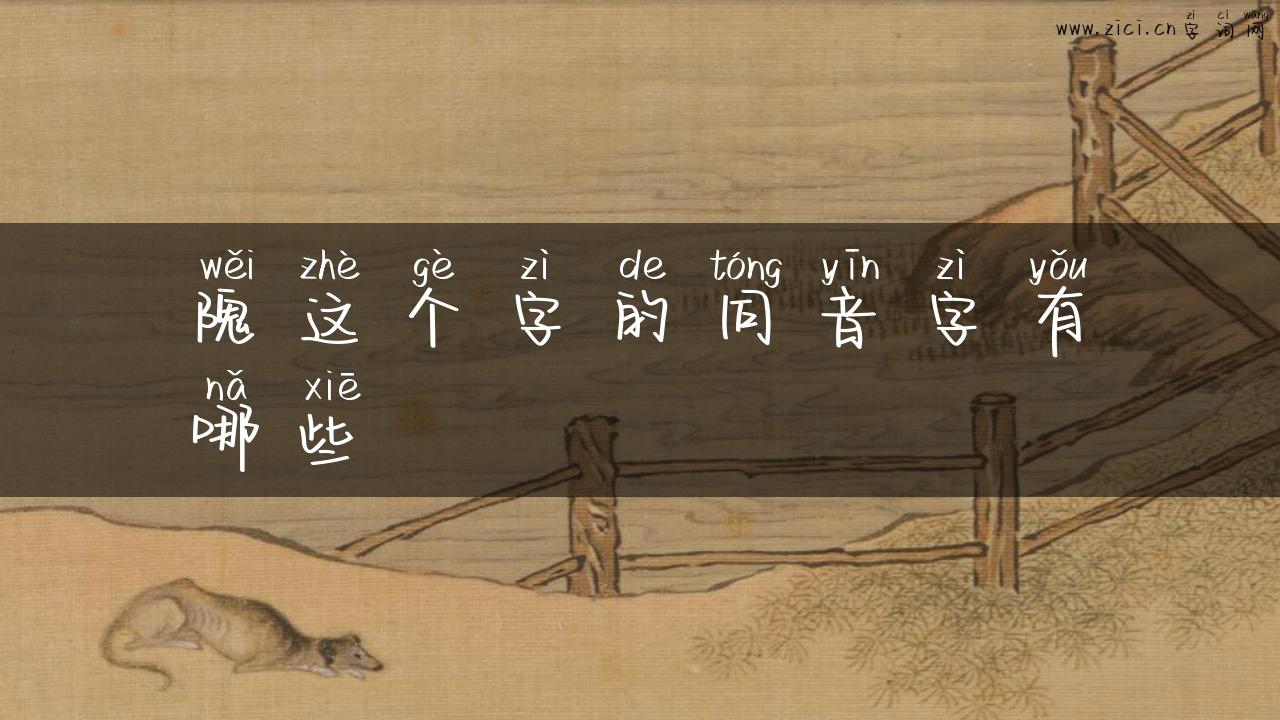 zì cí wǎng
www.zici.cn 字词网
wěi zhè gè zì de tóng yīn zì yǒu
隗这个字的同音字有
nǎ xiē
哪些